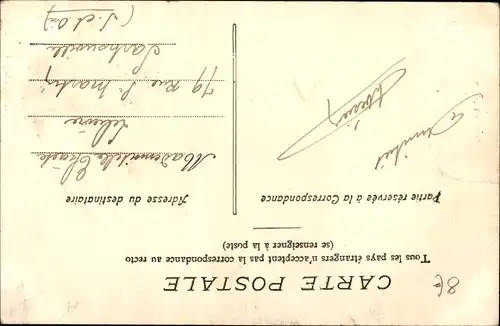 CARTE POSTALE
Tous les pays étrangers n'acceptent pas la correspondance au recto
(se renseigner à la poste)
Partie réservée à la Correspondance
Adresse du destinataire
Amitiés
Mademoiselle
Lelièvre
79 rue St Martin
Sartrouville
(S. et O.)
8€